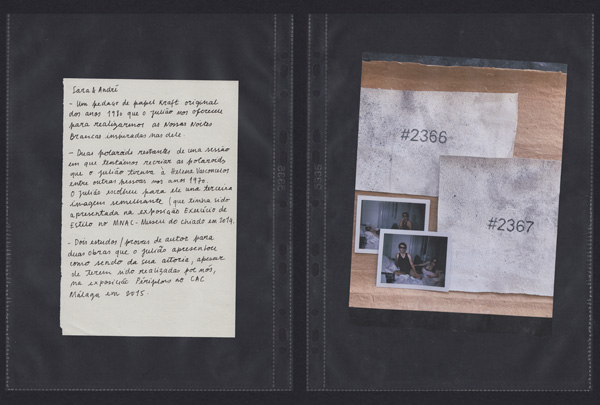 Sara & André
- Um pedaço de papel Kraft original
dos anos 1970 que o Julião nos ofereceu
para realizarmos as Nossas Noites
Brancas inspiradas nas dele.
- Duas polaroids restantes de uma sessão
em que tentámos recriar as polaroids
que o Julião tirava à Helena Vasconcelos
entre outras pessoas nos anos 1970.
O Julião escolheu para ele uma terceira
imagem semelhante (que tinha sido
apresentada na exposição Exercício de
Estilo no MNAC - Museu do Chiado em 2014.
- Dois estudos / provas de autor para
duas obras que o Julião apresentou
como sendo da sua autoria, apesar
de terem sido realizadas por nós,
na exposição Périplos no CAC
Málaga em 2015.
#2366
#2367